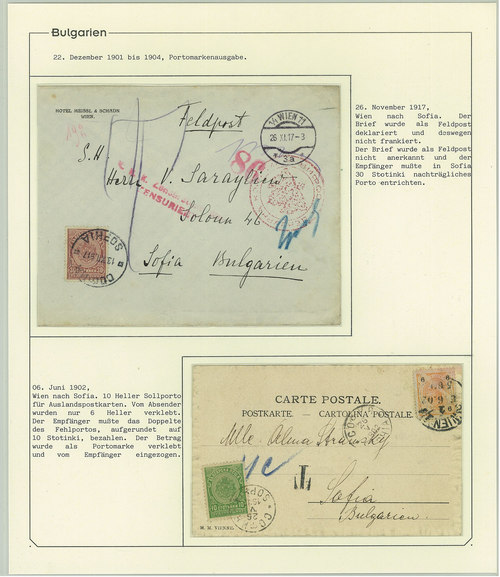 Bulgarien
22. Dezember 1901 bis 1904, Portomarkenausgabe.
HOTEL MEISSL & SCHADN
WIEN.
Feldpost
1/1 WIEN 11
26.XI.17-3
* 3a *
S.H
Herrn V. Saraylino
Soloun 46
Sofia Bulgarien
86
ZENSURIERT
26. November 1917,
Wien nach Sofia. Der
Brief wurde als Feldpost
deklariert und doswegen
nicht frankiert.
Der Brief wurde als Feldpost
nicht anerkannt und der
Empfänger mußte in Sofia
30 Stotinki nachträgliches
Porto entrichten.
06. Juni 1902,
Wien nach Sofia. 10 Heller Sollporto
für Auslandspostkarten. Vom Absender
wurden nur 6 Heller verklebt.
Der Empfänger mußte das Doppelte
des Fehlportos, aufgerundet auf
10 Stotinki, bezahlen. Der Betrag
wurde als Portomarke verklebt
und vom Empfänger eingezogen.
CARTE POSTALE.
POSTKARTE. — CARTOLINA POSTALE
Mlle. Alma
T
Sofia
Bulgarien
M. M. VIENNE.